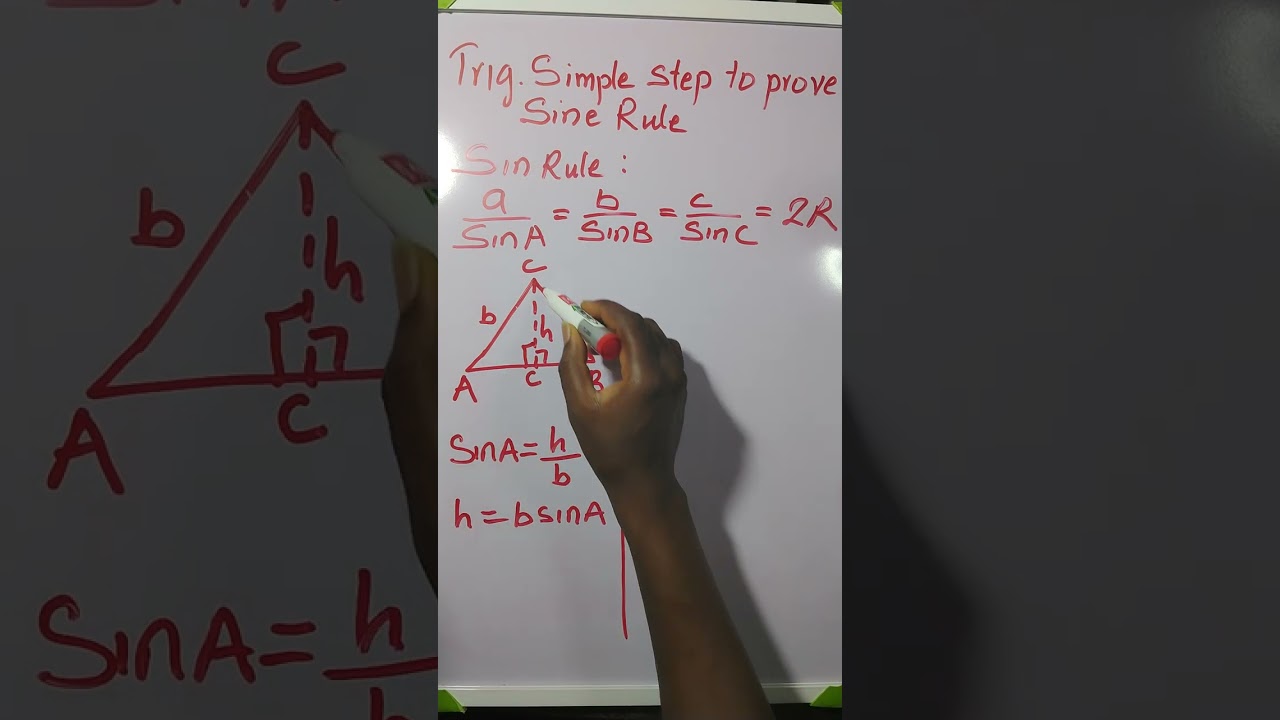 Trig. Simple step to prove
Sine Rule
Sin Rule :
a/SinA = b/SinB = c/SinC = 2R
C
b
h
A
C
B
SinA = h/b
h = bsinA
C
b
h
A
C
SinA = h